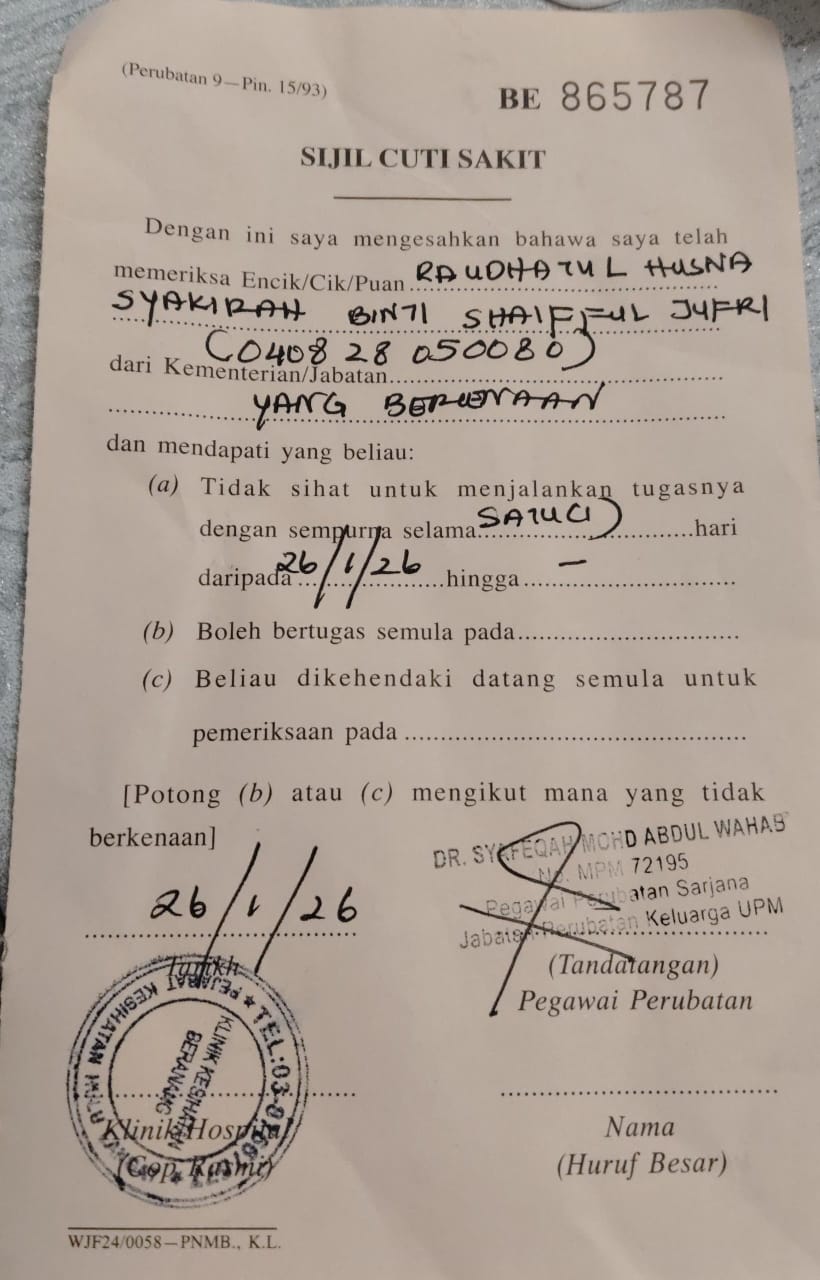 (Perubatan 9—Pin. 15/93)
BE 865787
SIJIL CUTI SAKIT
Dengan ini saya mengesahkan bahawa saya telah
memeriksa Encik/Cik/Puan RAUDHATUL HUSNA
SYAKIRAH BINTI SHAIFFUL JUFRI
(040828050080)
dari Kementerian/Jabatan
YANG BERKENAAN
dan mendapati yang beliau:
(a) Tidak sihat untuk menjalankan tugasnya
dengan sempurna selama SATU(1) hari
daripada 26/1/26 hingga –
(b) Boleh bertugas semula pada
(c) Beliau dikehendaki datang semula untuk
pemeriksaan pada
[Potong (b) atau (c) mengikut mana yang tidak
berkenaan]
DR. SYAFEQAH MOHD ABDUL WAHAB
No. MPM 72195
Pegawai Perubatan Sarjana
Jabatan Perubatan Keluarga UPM
26/1/26
Tarikh
(Tandatangan)
Pegawai Perubatan
PEJABAT KESIHATAN
TEL:03-
KLINIK KESIHATAN
BERANANG
Klinik/Hospital
(Cop Rasmi)
Nama
(Huruf Besar)
WJF24/0058—PNMB., K.L.